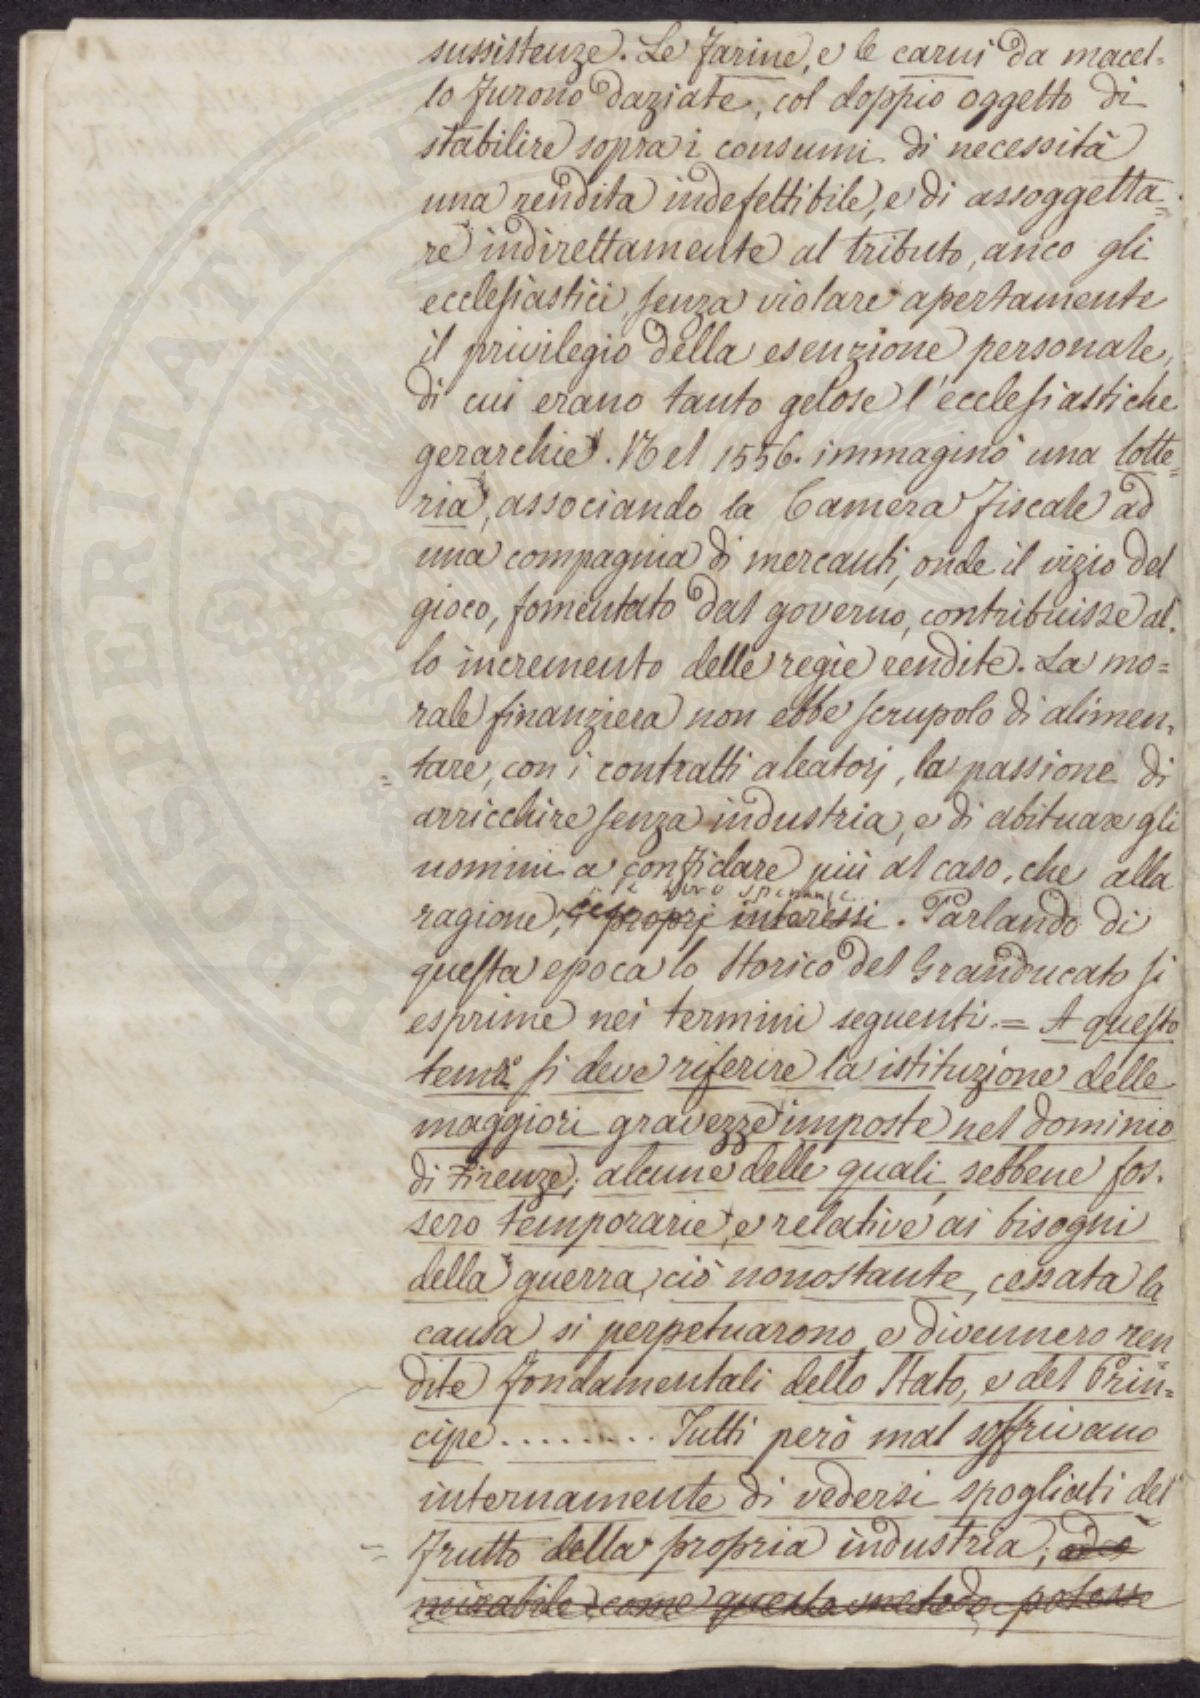 sussistenze. Le farine, e le carni da macel=
lo furono daziate, col doppio oggetto di
stabilire sopra i consumi di necessità
una rendita indefettibile, e di assoggetta=
re indirettamente al tributo, anco gli
ecclesiastici, senza violare apertamente
il privilegio della esenzione personale,
di cui erano tanto gelose l'ecclesiastiche
gerarchie. Nel 1556. immaginò una lotte=
ria, associando la Camera fiscale ad
una compagnia di mercanti, onde il vizio del
gioco, fomentato dal governo, contribuisse al=
lo incremento delle regie rendite. La mo=
rale finanziera non ebbe scrupolo di alimen=
tare, con i contratti aleatorj, la passione di
arricchire senza industria, e di abituare gli
uomini a confidare più al caso, che alla
le loro speranze
ragione, proprj interessi. Parlando di
questa epoca lo Storico del Granducato si
esprime nei termini seguenti. = A questo
temp.º si deve riferire la istituzione delle
maggiori gravezze imposte nel dominio
di Firenze; alcune delle quali, sebbene fos=
sero temporarie, e relative ai bisogni
della guerra, ciò nonostante, cessata la
causa, si perpetuarono, e divennero ren=
dite fondamentali dello Stato, e del Prin=
cipe......... Tutti però mal soffrivano
internamente di vedersi spogliati del
frutto della propria industria; ed è
mirabile come questo metodo potesse
PROSPERITATI PUBLICAE